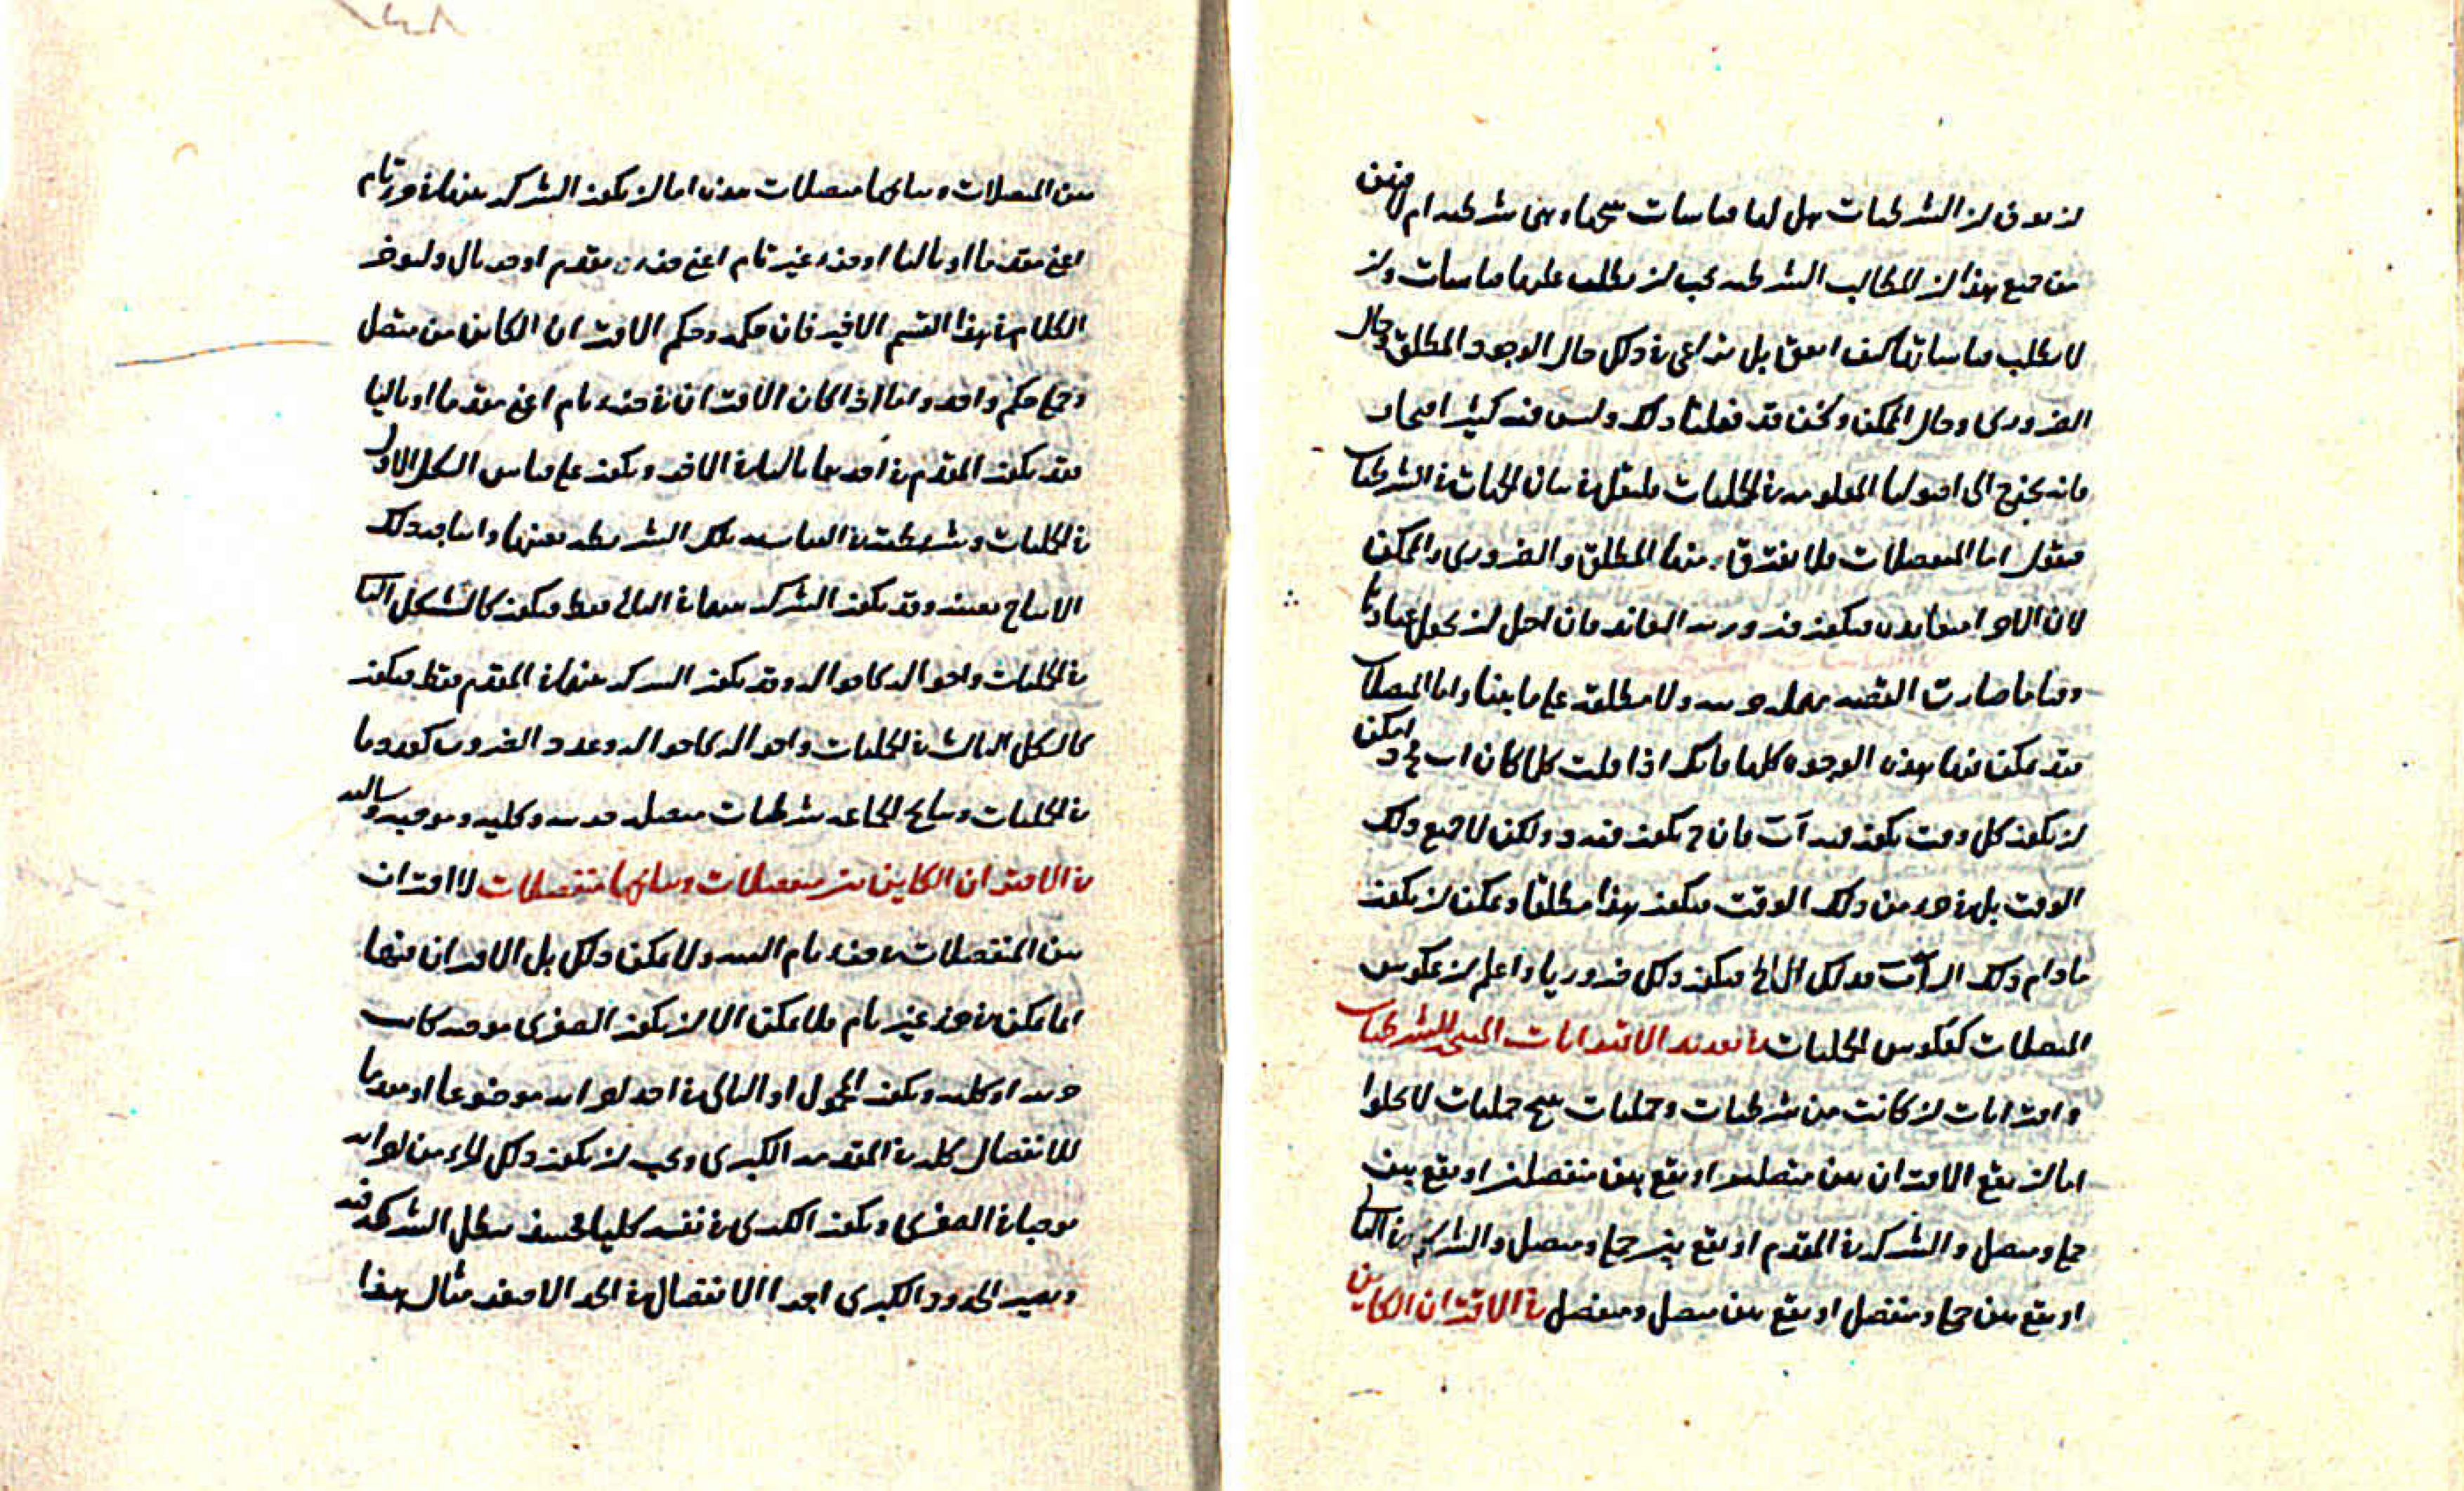 ان نعرف ان الشرطيات هل لها قياسات تنتجها وهى شرطيه ام لا فبين
من جميع هذا ان المطالب الشرطيه يجب ان يطلب عليها قياسات وان
لا يطلب قياساتها كيف اتفق بل يراعى فى ذلك حال الوجود المطلق وحال
الضرورى وحال الممكن ونحن قد فعلنا ذلك وليس فيه كثير
فانه يخرج الى اصولها المعلومه فى الحمليات فى بيان الجهات فى الشرطيات
فنقول اما المنفصلات فلا يفترق منها المطلق والضرورى والممكن
لان فيكون ضروريه العناد فان
صارت القضيه ولا مطلقه على ما بينا واما المتصلات
فقد يمكن فيها هذه الوجوه كلها فانك اذا قلت كلما كان ا ب فج د امكن
ان يكون كل وقت يكون فيه ا ب فان ج يكون فيه د ولكن لا جميع ذلك
الوقت بل فى جزء من ذلك الوقت فيكون هذا مطلقا ويمكن ان يكون
ما دام ذلك ا ب فذلك التالى فيكون ذلك ضروريا واعلم ان عكوس
المتصلات كعكوس الحمليات فى تعديد الاقترانات المنتجه للشرطيات
واقترانات ان كانت من شرطيات وحمليات تنتج حمليات لا يخلوا
اما ان يقع الاقتران بين متصلين او يقع بين منفصلين او يقع بين
حملى ومتصل والشركه فى المقدم او يقع بين حملى ومتصل والشركه فى التالى
او يقع بين حملى ومنفصل او يقع بين متصل ومنفصل فى الاقتران الكاين
من المتصلات ونتايجها متصلات هذه اما ان يكون الشركه بينها فى جزء تام
اعنى مقدما او تاليا او جزء غير تام اعنى جزء من مقدم او جزء تال وليؤخر
الكلام فى هذا القسم الاخير فان حكمه وحكم الاقتران الكاين من متصل
وحملى حكم واحد واما اذا كان الاقتران فى جزء تام اعنى مقدما او تاليا
فقد يكون المقدم فى احدهما تاليا فى الاخر ويكون على قياس الشكل الاول
فى الحمليات وشريطته فى القياسيه تلك الشريطه بعينها وانتاجه ذلك
الانتاج بعينه وقد يكون الشركه بينهما فى التالى فقط فيكون كالشكل الثانى
فى الحمليات واحواله كاحواله وقد يكون الشركه بينها فى المقدم فقط فيكون
كالشكل الثالث فى الحمليات واحواله كاحواله وعدد الضروب كعددها
فى الحمليات ونتايج الجماعه شرطيات متصله جزييه وكليه وموجبه وسالبه
فى الاقتران الكاين من منفصلات ونتايجها منفصلات لا اقتران
بين المنفصلات فى جزء تام البته ولا يمكن ذلك بل الاقتران منها
انما يمكن فى جزء غير تام فلا يمكن الا ان يكون الصغرى موجبه كانت
جزييه او كليه ويكون المحمول او التالى فى احد اجزائه موضوعا او مقدما
للانفصال كله فى المقدمه الكبرى ويجب ان يكون ذلك الجزء من اجزائه
موجبا فى الصغرى ويكون الكبرى فى نفسه كليا فحينئذ يبطل الشركه فيه
ويصير الحدود الكبرى اجزا الانفصال فى الحد الاصغر مثال هذا